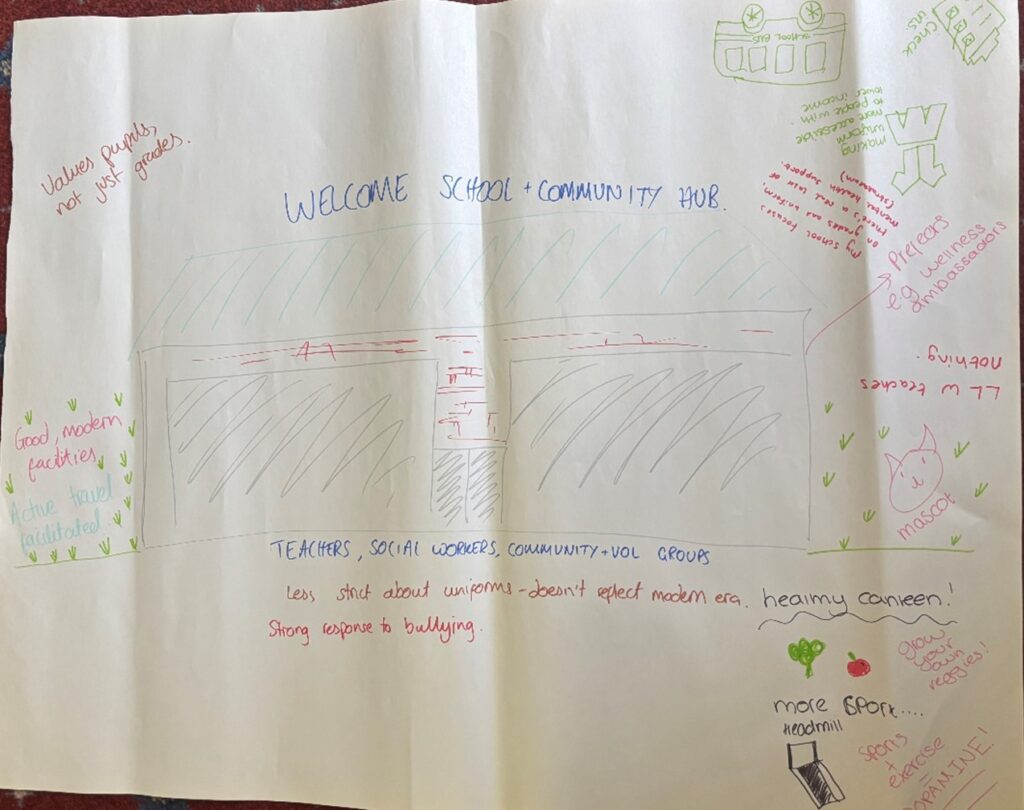 SCHOOL BUS
CHECK
INS.
making
uniform
more accessible
to people with
lower income
Values pupils,
not just grades.
My school focuses
on grades and uniform,
there's a real lack of
mental health support.
WELCOME SCHOOL + COMMUNITY HUB.
Prefects
e.g wellness
ambassadors
LLW teaches
nothing.
Good, modern
facilities
Active travel
facilitated.
mascot
TEACHERS, SOCIAL WORKERS, COMMUNITY + VOL GROUPS
Less strict about uniforms - doesn't reflect modern era.
Strong response to bullying.
healthy canteen!
grow
your
own
veggies!
more sport....
treadmill
sports
+
exercise
=
DOPAMINE!